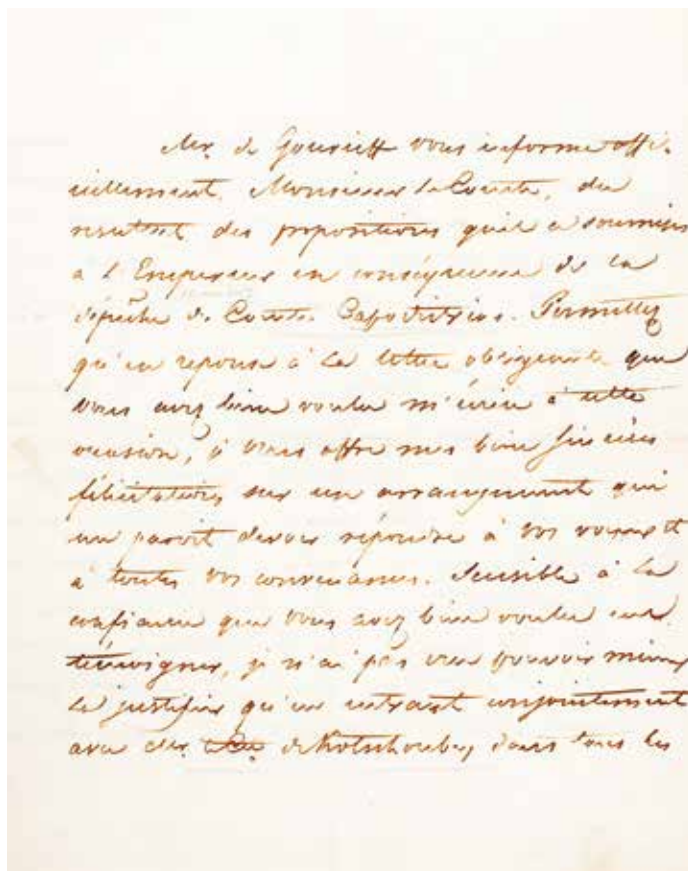 Mr. de Gourieff vous informe offi-
ciellement, Monsieur le Comte, du
résultat des propositions qu'il a soumises
à l'Empereur en conséquence de la
dépêche du Comte Capodistrias. Permettez
qu'en réponse à la lettre obligeante que
vous avez bien voulu m'écrire à cette
occasion, je vous offre mes bien sincères
félicitations sur un arrangement qui
me paroit devoir répondre à vos voeux et
à toutes vos convenances. Sensible à la
confiance que vous avez bien voulu me
témoigner, je n'ai pas cru pouvoir mieux
la justifier qu'en entrant conjointement
avec Mr. de Kotschoubey dans tous les